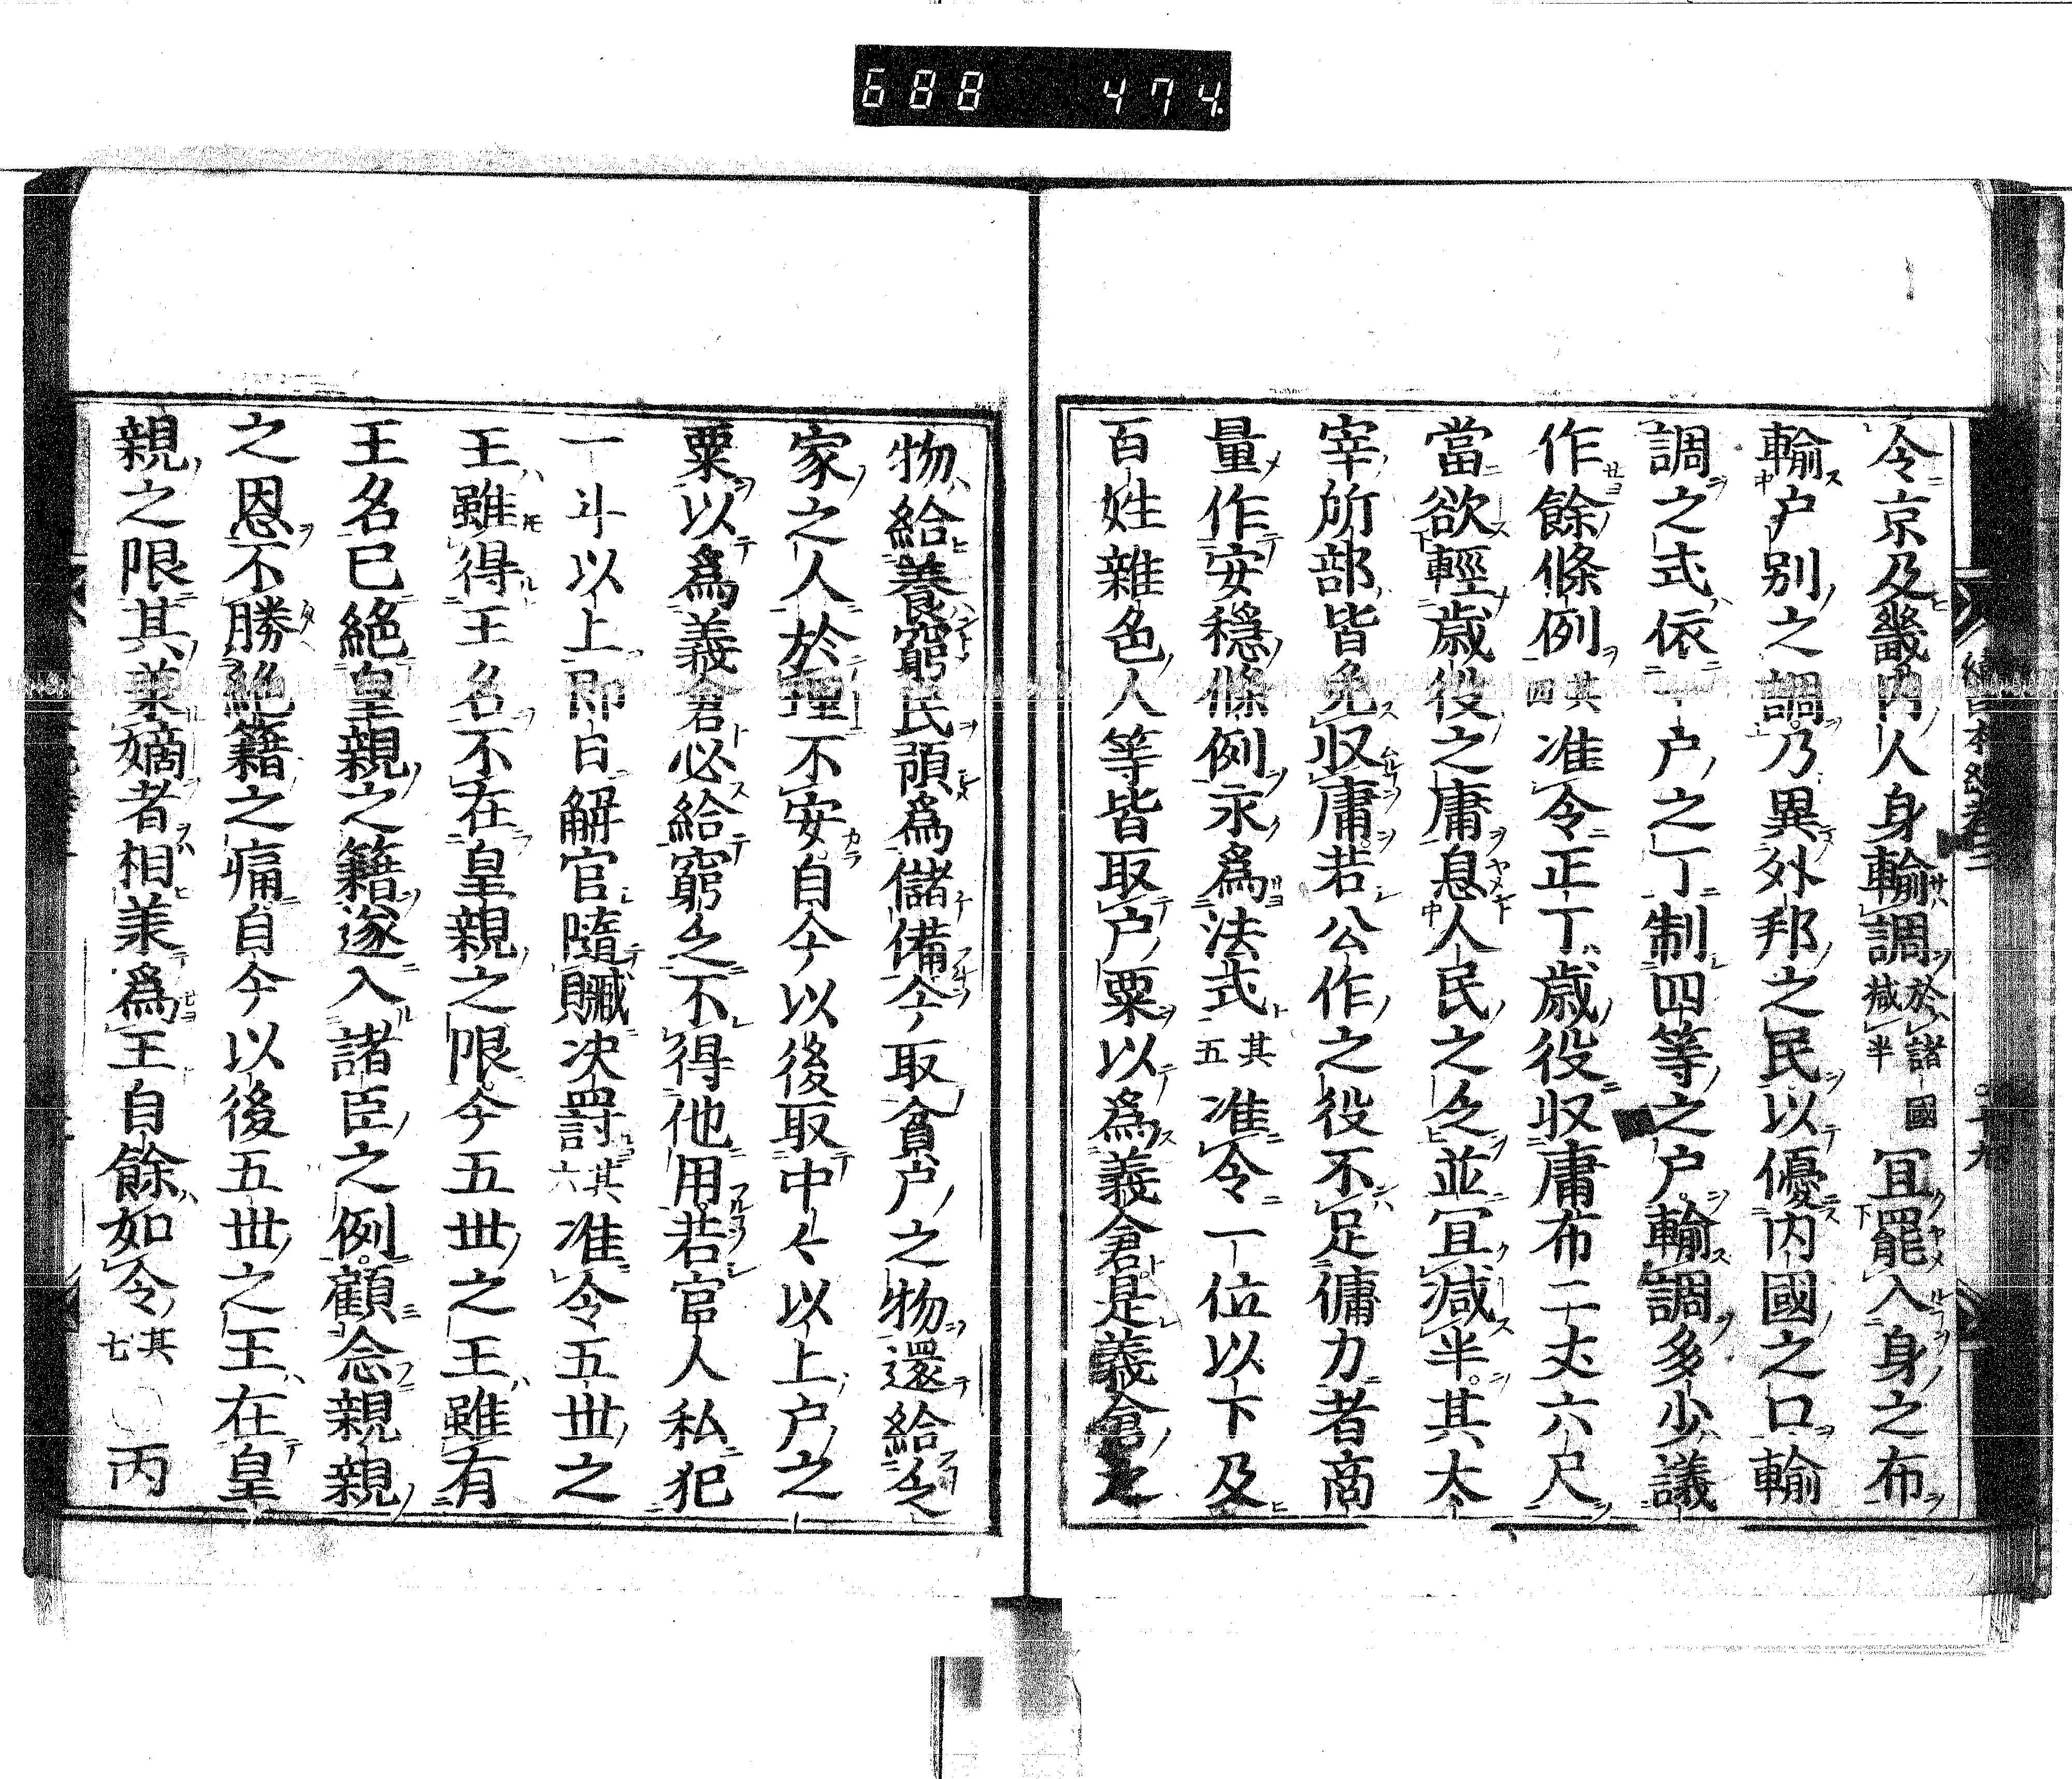 688 474.
令京及畿内人身輸調於諸國減半冝罷入身之布
輸户别之調乃異外邦之民以優内國之口輸
調之式依一户之丁制四等之户輸調多少議
作餘條例其四准令正丁歳役収庸布二丈六尺
當欲輕歳役之庸息人民之乏並冝減半其大
宰所部皆免収庸若公作之役不足傭力者商
量作安穏條例永爲法式其五准令一位以下及
百姓雜色人等皆取户粟以爲義倉是義倉之
物給養窮民預爲儲備今取貧户之物還給乏
家之人於理不安自今以後取中々以上户之
粟以爲義倉必給窮乏不得他用若官人私犯
一斗以上即日解官隨贓决罸其六准令五丗之
王雖得王名不在皇親之限今五丗之王雖有
王名已絶皇親之籍遂入諸臣之例顧念親親
之恩不勝絶籍之痛自今以後五丗之王在皇
親之限其業嫡者相業爲王自餘如令其七 ○丙